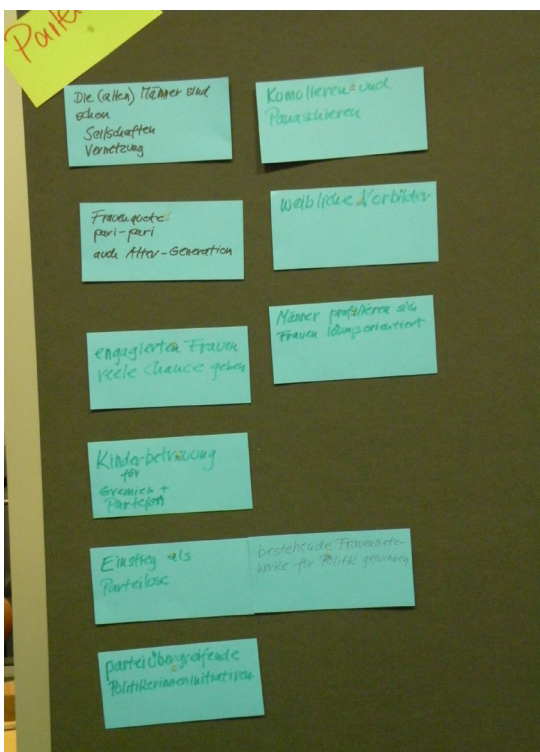 Partei
Die (alten) Männer sind
schon
Seilschaften
Vernetzung
Frauenquote
pari-pari
auch Alter-Generation
engagierten Frauen
reele Chance geben
Kinderbetreuung
für
Gremien +
Parteien
Einstieg als
Parteilose
parteiübergreifende
Politikerinneninitiativen
Komulieren und
Panaschieren
weibliche Vorbilder
Männer profilieren sich
Frauen lösungsorientiert
bestehende Frauennetz-
werke für Politik gewinnen